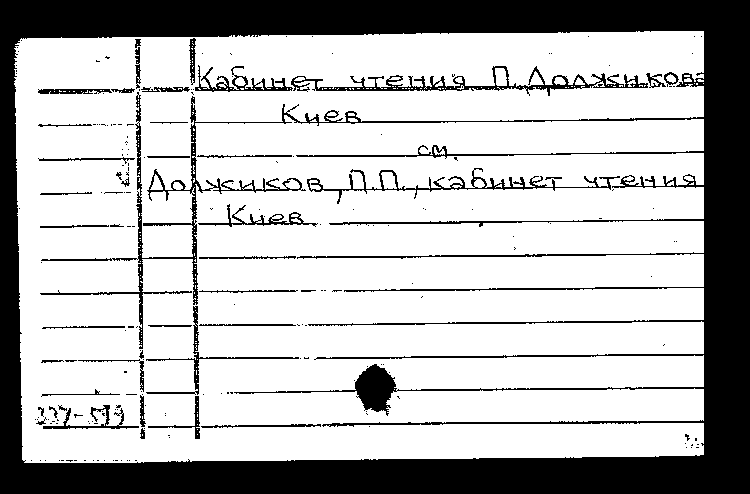 Кабинет чтения П. Должикова
Киев
см.
Должиков, П.П., кабинет чтения
Киев